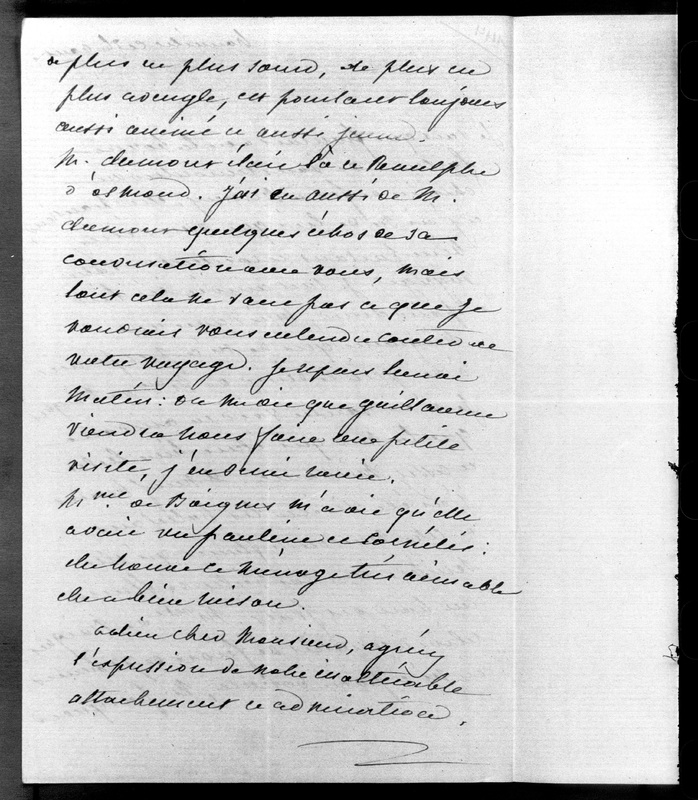 de plus en plus sourd, de plus en
plus aveugle, est pourtant toujours
aussi animé et aussi jeune.
M. dumont était là et Raoulphe
d'osmond. J'ai eu aussi de M.
dumont quelques échos de sa
conversation avec vous, mais
tout cela ne vaut pas ce que je
voudrais vous entendre conter de
votre voyage. Je repars lundi
matin: on me dit que guillaume
viendra nous faire une petite
visite, j'en serai ravie.
Mme de Boignes m'a dit qu'elle
avait vu pauline et Cornélis:
elle trouve ce ménage très aimable
elle a bien raison.
adieu cher Monsieur, agréez
l'expression de notre inaltérable
attachement et admiration.